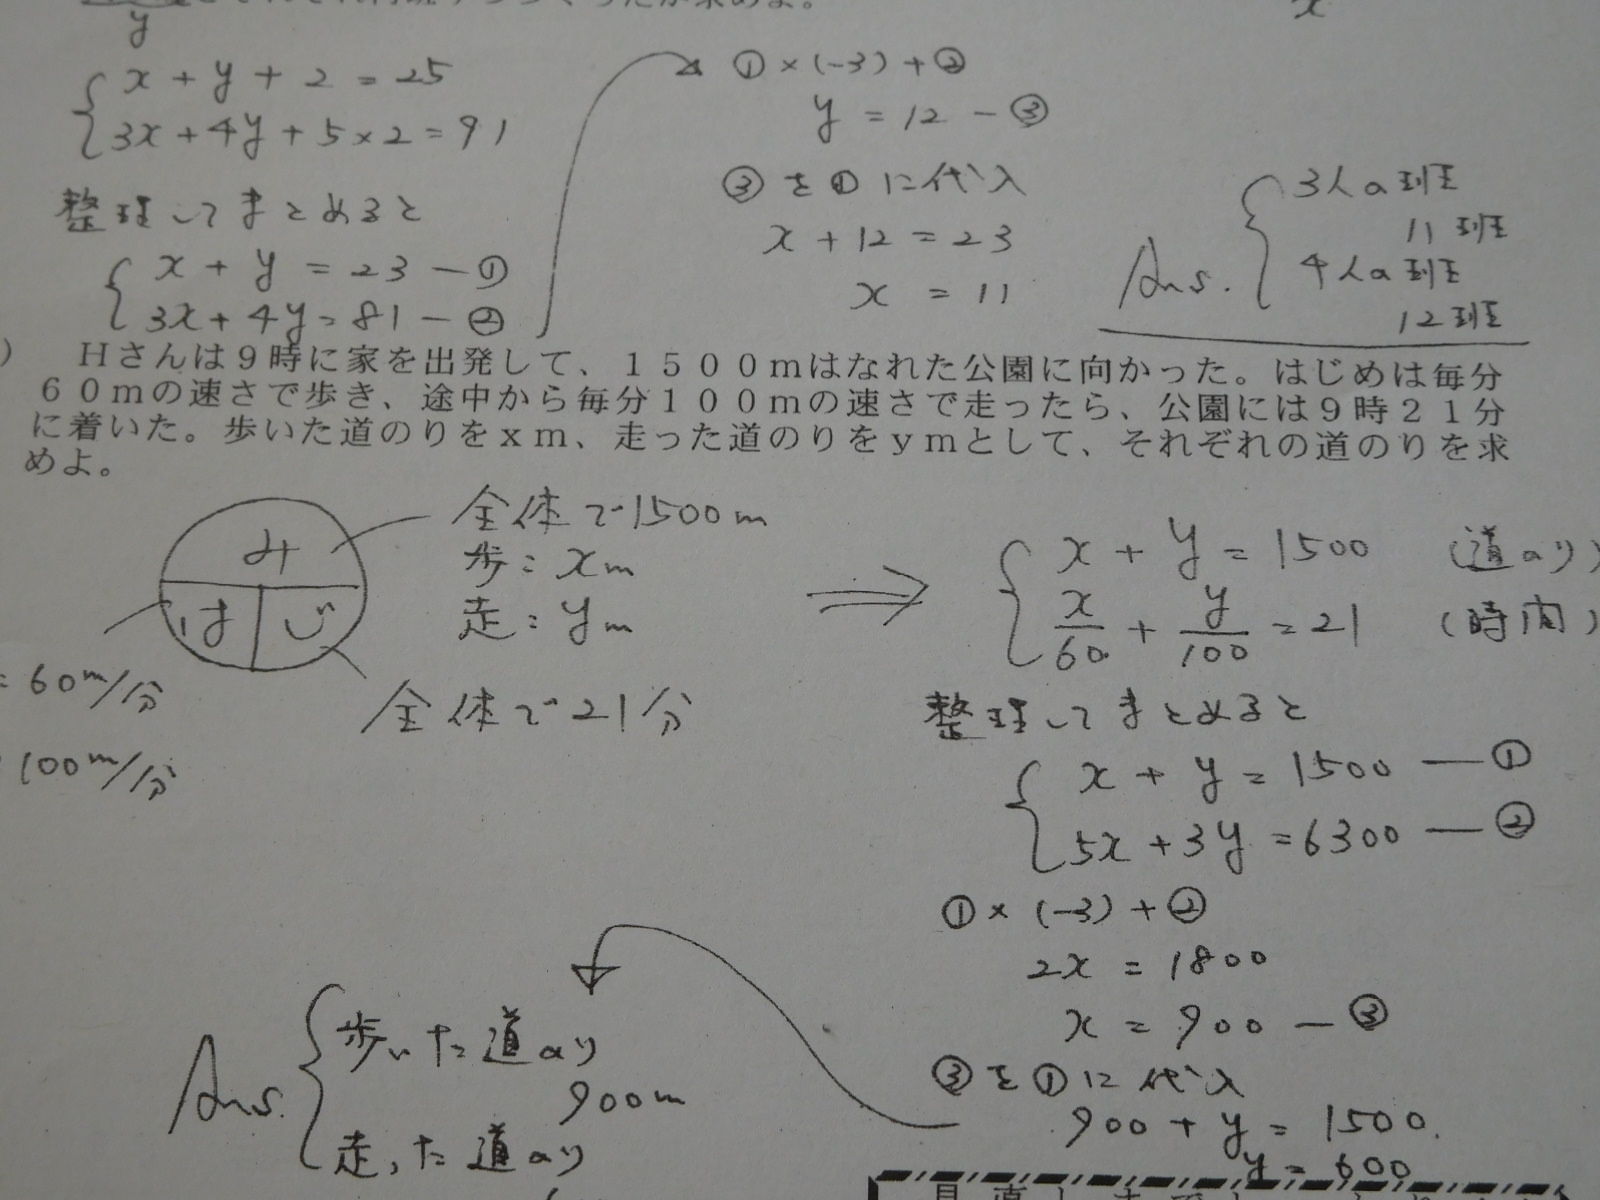 y
x
x + y + 2 = 25
3x + 4y + 5×2 = 91
整理してまとめると
x + y = 23 ー①
3x + 4y = 81 ー②
①×(-3)+②
y = 12 ー③
③を①に代入
x + 12 = 23
x = 11
Ans.
3人の班
11班
4人の班
12班
) Hさんは9時に家を出発して、1500mはなれた公園に向かった。はじめは毎分
60mの速さで歩き、途中から毎分100mの速さで走ったら、公園には9時21分
に着いた。歩いた道のりをxm、走った道のりをymとして、それぞれの道のりを求
めよ。
み
は じ
全体で1500m
歩:xm
走:ym
= 60m/分
100m/分
全体で21分
x + y = 1500 (道のり)
x/60 + y/100 = 21 (時間)
整理してまとめると
x + y = 1500 ー①
5x + 3y = 6300 ー②
①×(-3)+②
2x = 1800
x = 900 ー③
③を①に代入
900 + y = 1500
y = 600
Ans.
歩いた道のり
900m
走った道のり